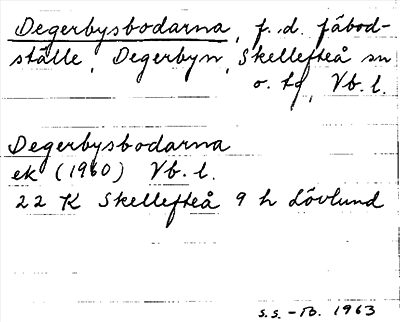 Degerbysbodarna, f. d. fäbod-
ställe, Degerbyn, Skellefteå sn
o. tg, Vb. l.
Degerbysbodarna
ek (1960) Vb. l.
22 K Skellefteå 9 h Lövlund
S.S. - B. 1963